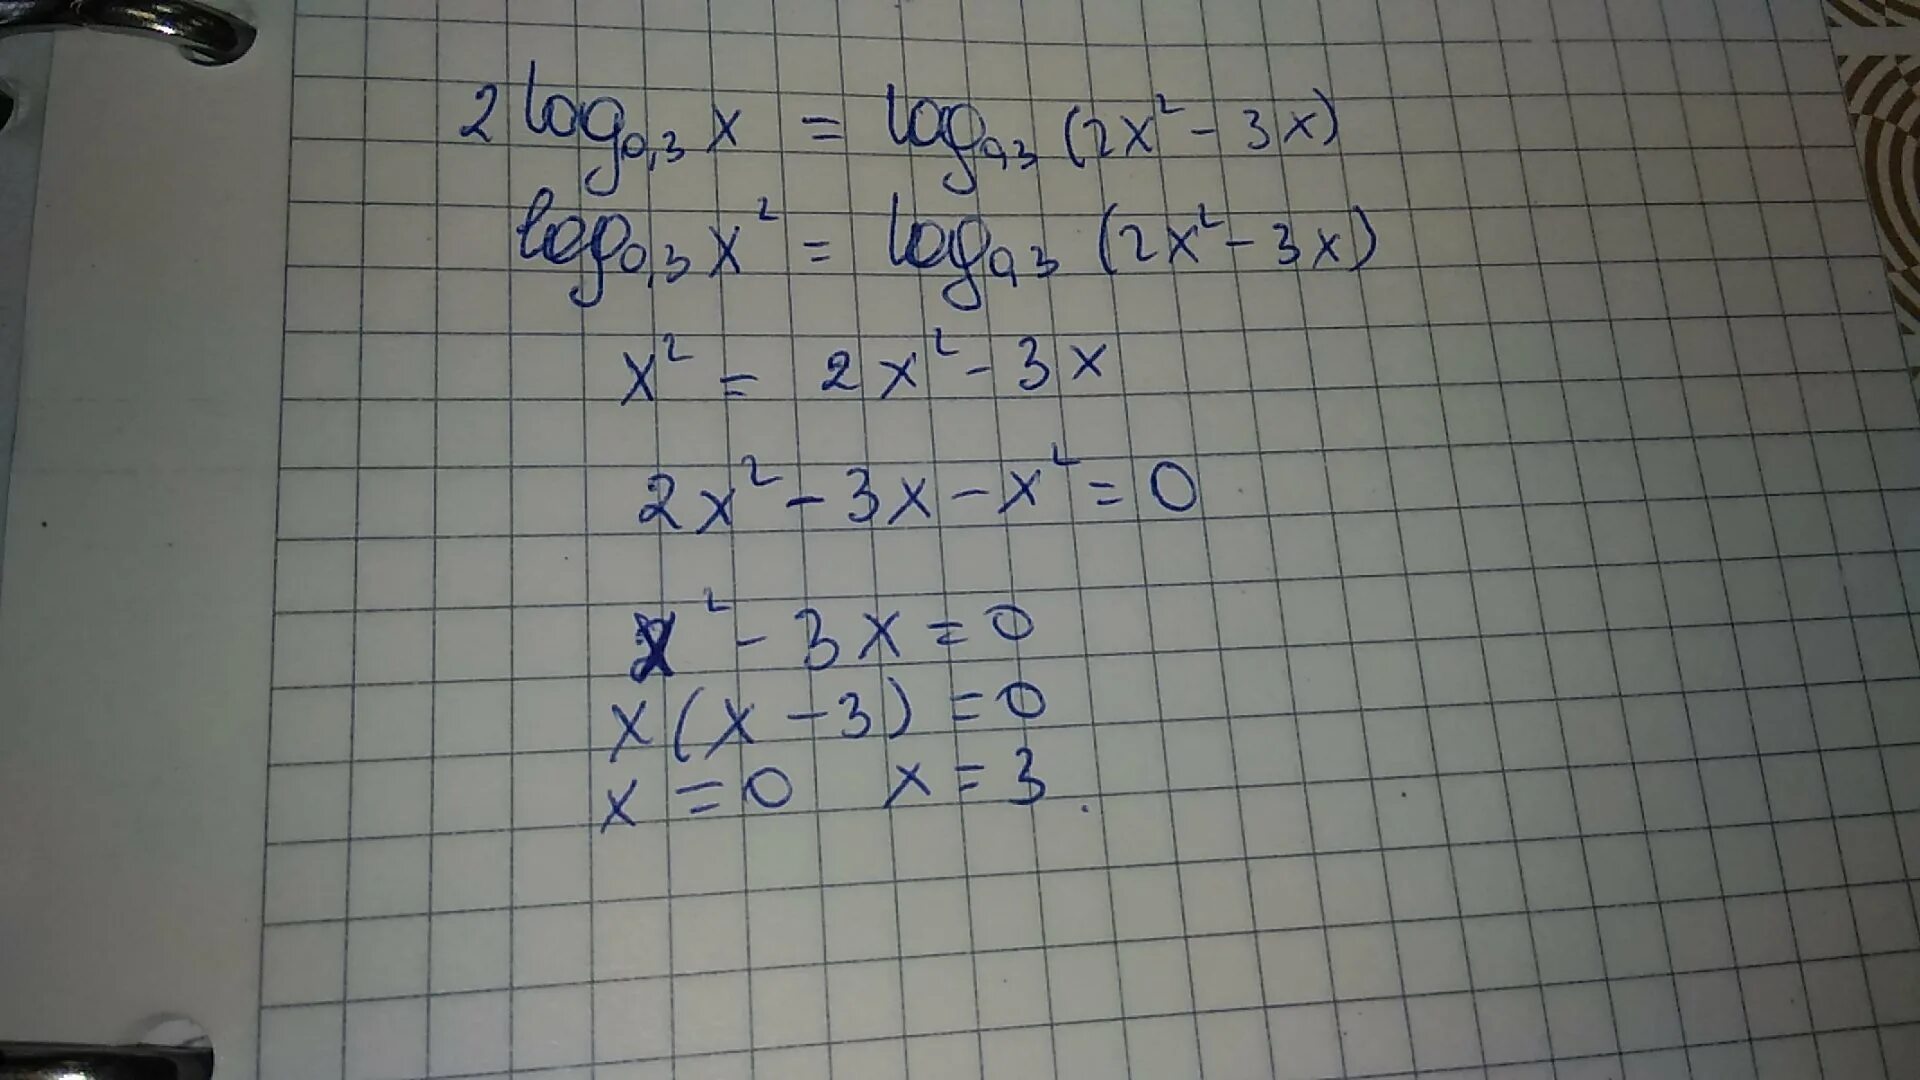 2 log₀,₃ x = log₀,₃ (2x² - 3x)
log₀,₃ x² = log₀,₃ (2x² - 3x)
x² = 2x² - 3x
2x² - 3x - x² = 0
x² - 3x = 0
x(x - 3) = 0
x = 0 x = 3.